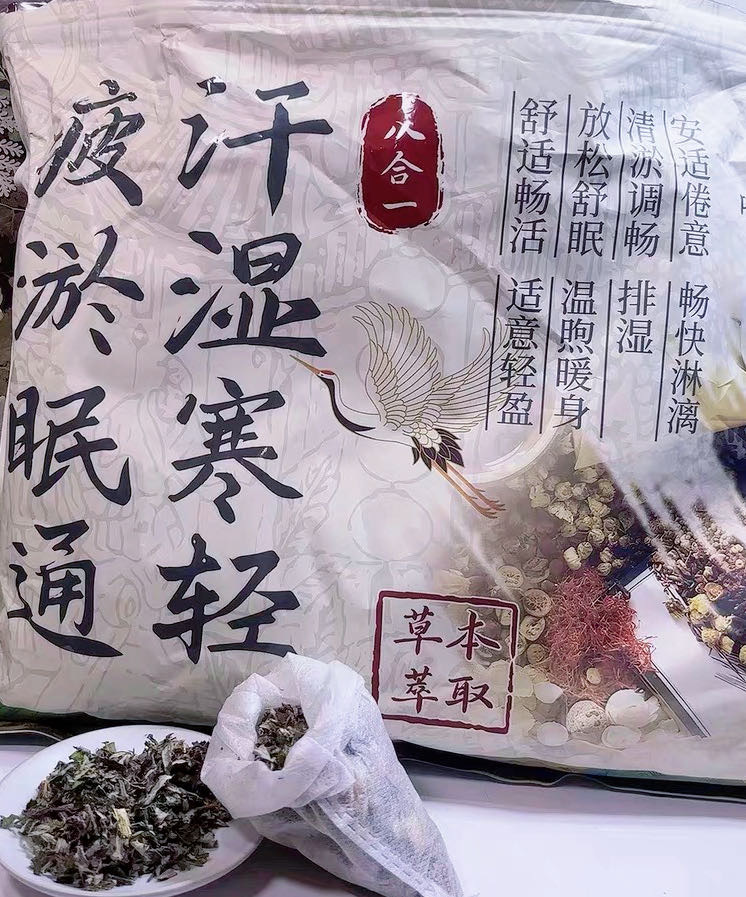 安适倦意
畅快淋漓
清淤调畅
排湿
放松舒眠
温煦暖身
舒适畅活
适意轻盈
八合一
汗湿寒轻
疲淤眠通
草本
萃取